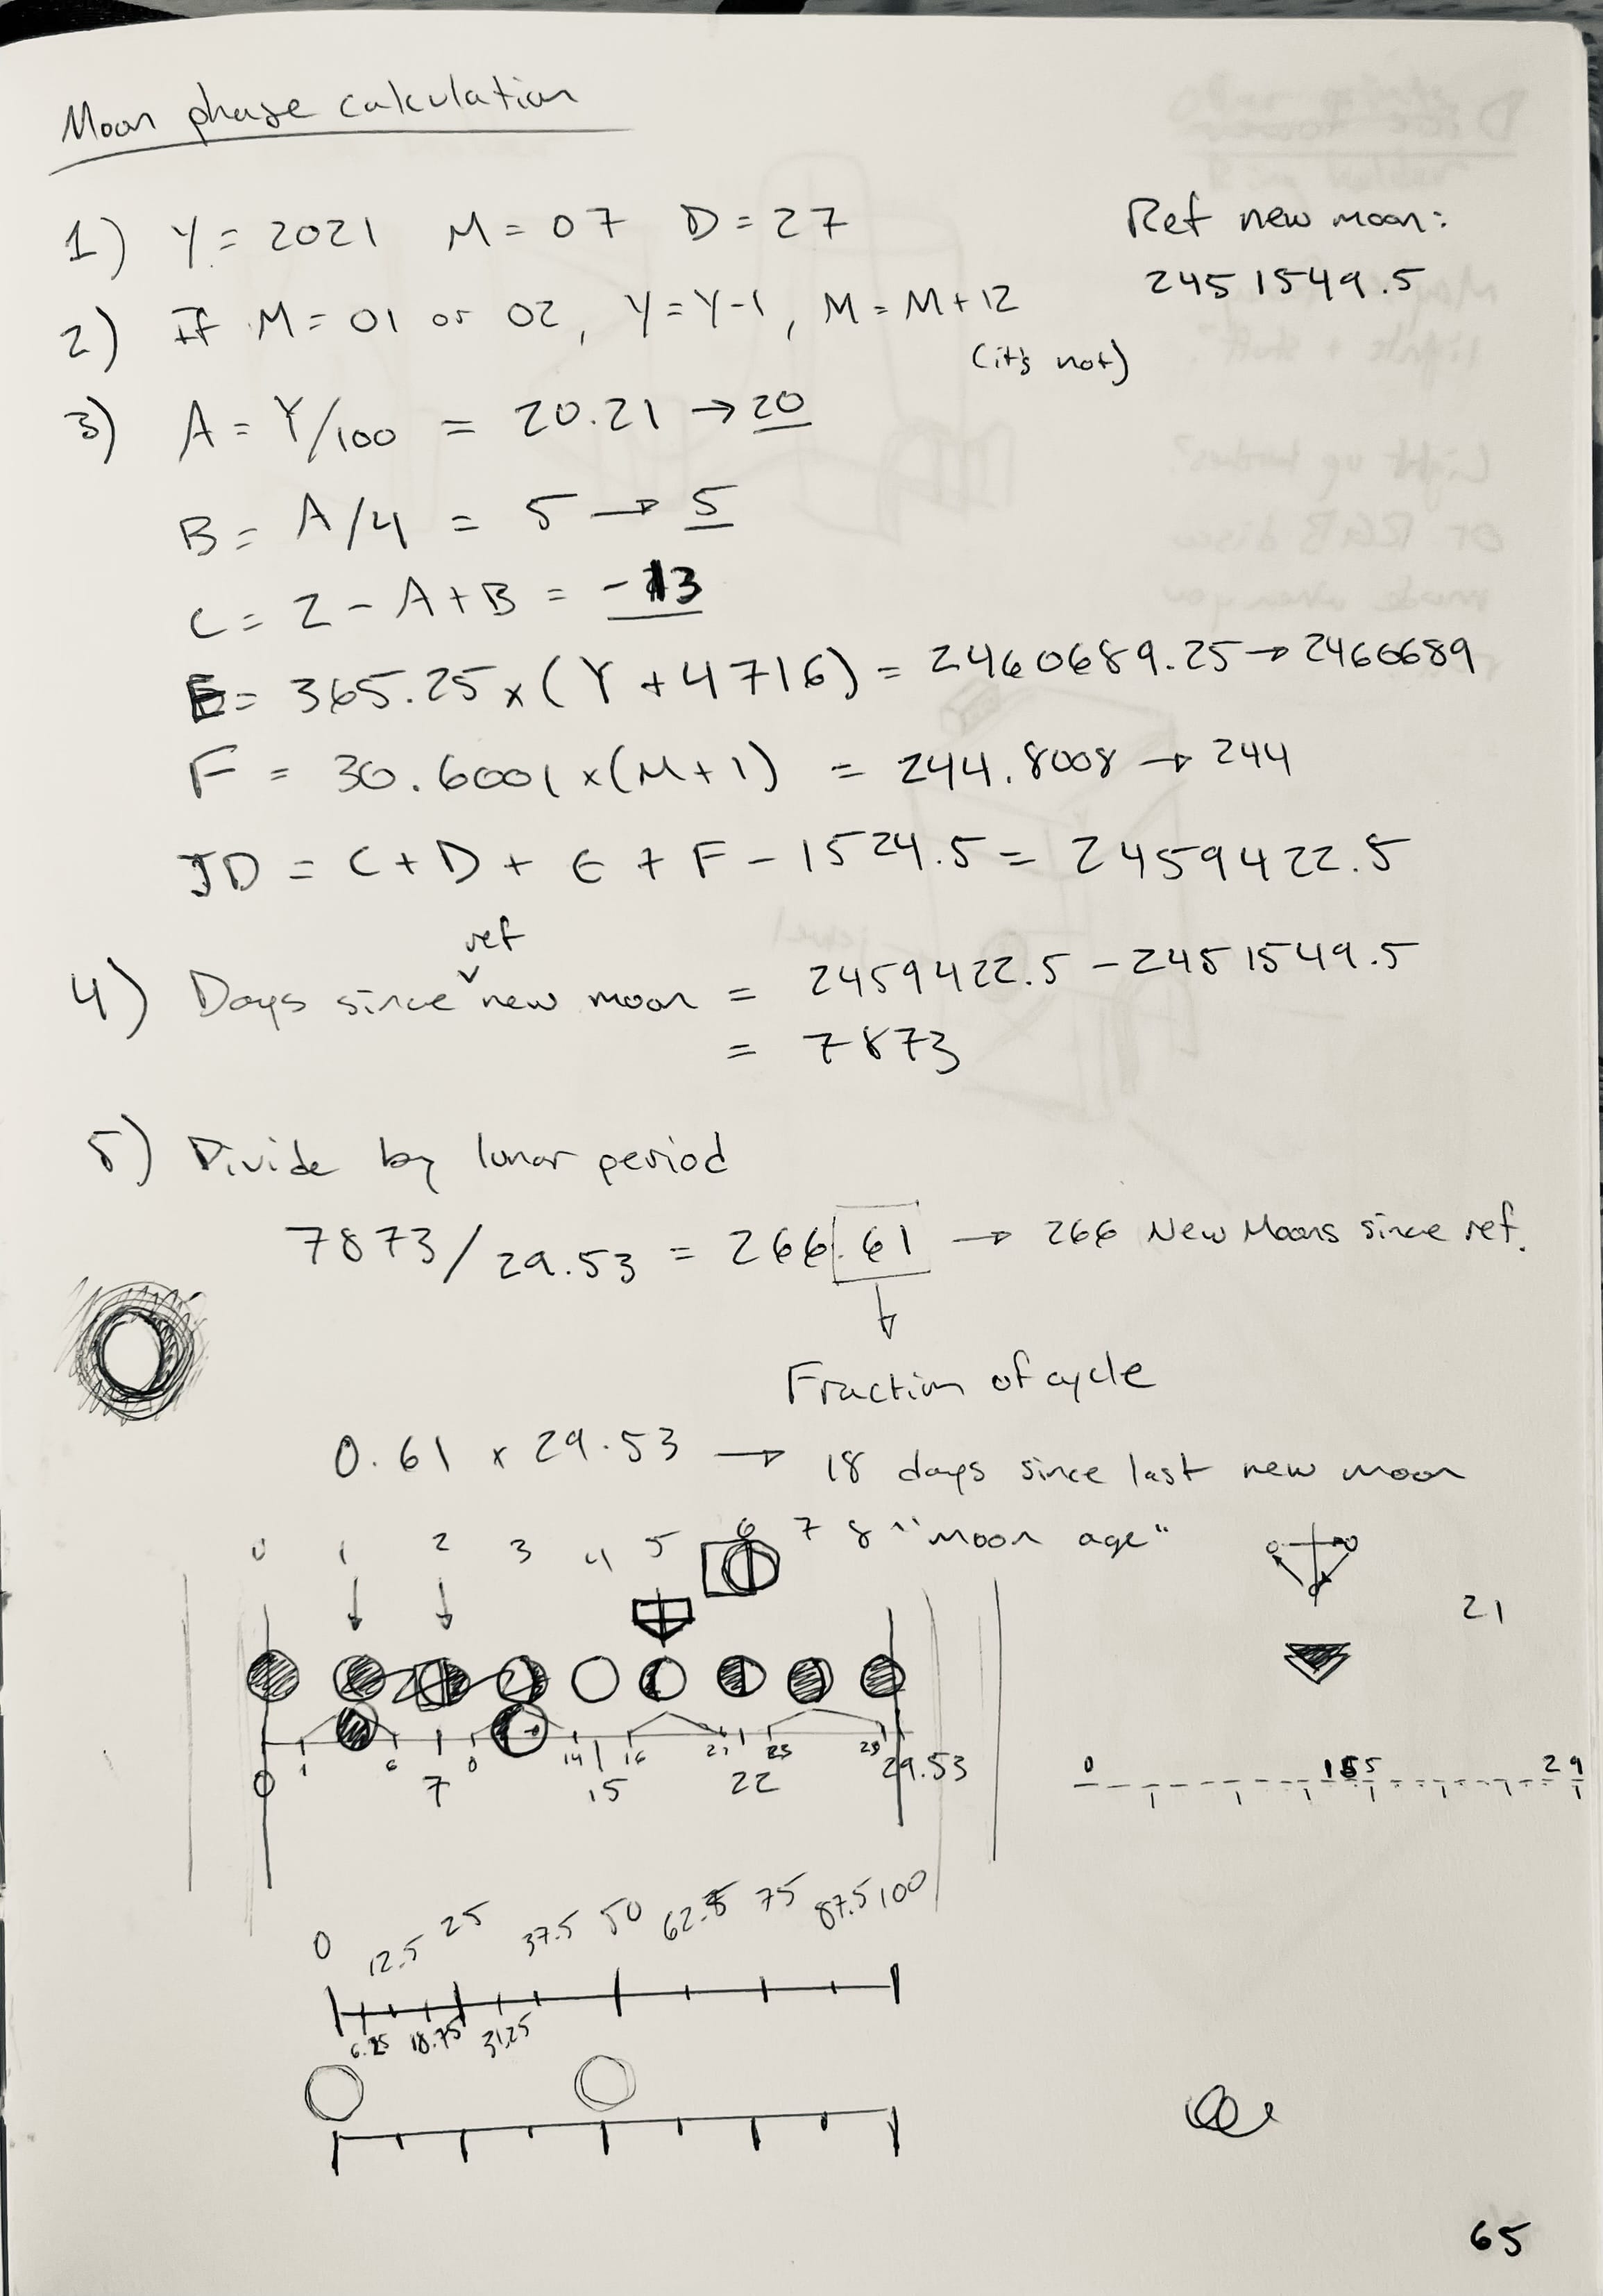 Moon phase calculation
1) Y = 2021 M = 07 D = 27
Ref new moon:
2451549.5
2) If M = 01 or 02, Y = Y-1, M = M+12
(it's not)
3) A = Y/100 = 20.21 → 20
B = A/4 = 5 → 5
C = 2 - A + B = -13
E = 365.25 x (Y + 4716) = 2460689.25 → 2460689
F = 30.6001 x (M + 1) = 244.8008 → 244
JD = C + D + E + F - 1524.5 = 2459422.5
4) Days since ref new moon = 2459422.5 - 2451549.5
= 7873
5) Divide by lunar period
7873 / 29.53 = 266.61 → 266 New Moons since ref.
Fraction of cycle
0.61 x 29.53 → 18 days since last new moon
0 1 2 3 4 5 6 7 8 "moon age"
21
1 6 8 14 16 21 23 28
0 7 15 22 29.53
0 15 29
0 12.5 25 37.5 50 62.5 75 87.5 100
6.25 18.75 31.25
65